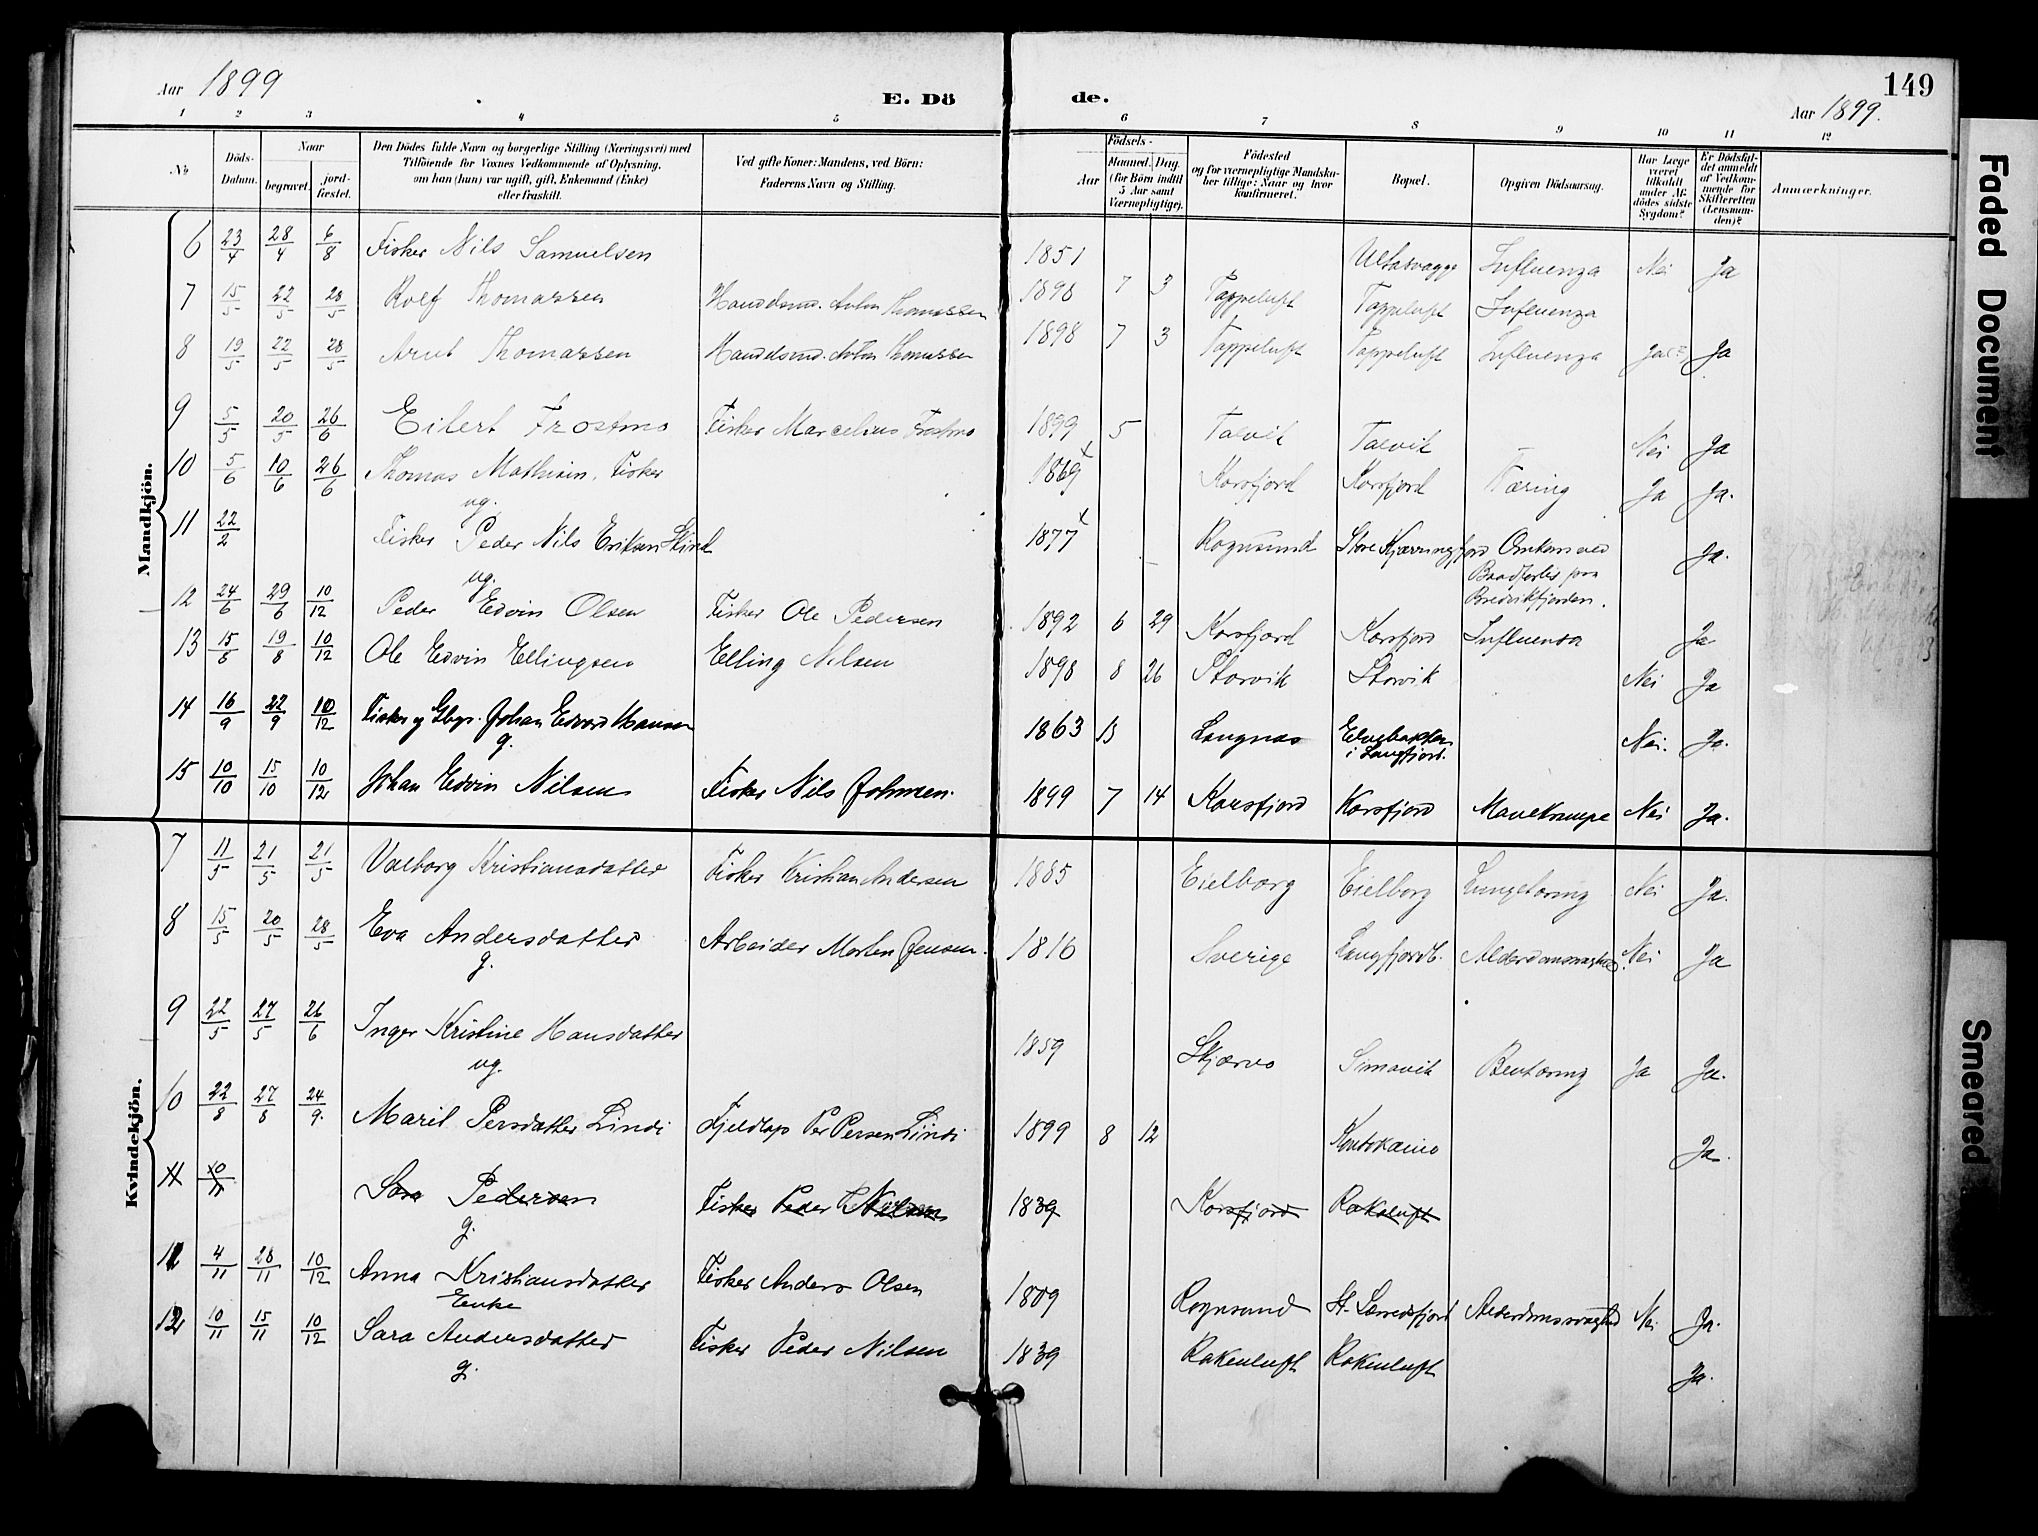 Aar 1899
E. Dö
de.
149
Aar 1899.
1 2 3 4 5 6 7 8 9 10 11 12
№
Döds-Datum.
Naar
begravet.
jord-fæstet.
Den Dödes fulde Navn og borgerlige Stilling (Næringsvei) med
Tilföiende for Voxnes Vedkommende af Oplysning,
om han (hun) var ugift, gift, Enkemand (Enke)
eller fraskilt.
Ved gifte Koner: Mandens, ved Börn:
Faderens Navn og Stilling.
Födsels-
Aar
Maaned. Dag.
(for Börn indtil
5 Aar samt
Værnepligtige).
Födested
og for værnepligtige Mandskaber tillige: Naar og hvor
konfirmeret.
Bopæl.
Opgiven Dödsaarsag.
Har Læge
været
tilkaldt
under Afdödes sidste
Sygdom?
Er Dödsfaldet anmeldt
af Vedkommende for
Skifteretten
(Lensmanden)?
Anmærkninger.
Mandkjön.
6 23/4 28/4 6/8 Fisker Nils Samuelsen 1851 Influenza Nei Ja
7 15/5 22/5 28/5 Rolf Thomassen Handelsmd. Anton Thomassen 1898 7 3 Tappeluft Tappeluft Influenza
8 19/5 22/5 28/5 Arnt Thomassen Handelsmd. Anton Thomassen 1898 7 3 Tappeluft Tappeluft Influenza Ja
9 5/5 20/5 26/6 Eilert Frostmo Fisker Marcelius Frostmo 1899 5 Talvik Talvik Nei Ja
10 5/6 10/6 26/6 Thomas Mathisen, Fisker 1869 Korsfjord Korsfjord Tæring Ja Ja.
ug.
11 22/2 Fisker Peder Nils Eriksen 1877 Rognsund Store Kjærringfjord Omkom ved Ja.
ug. Baadforlis paa
Bredvikfjorden.
12 24/6 29/6 10/12 Peder Edvin Olsen Fisker Ole Pedersen 1892 6 29 Korsfjord Korsfjord Influenza Ja
13 15/8 19/8 10/12 Ole Edvin Ellingsen Elling Nilsen 1898 8 26 Storvik Storvik Nei Ja
14 16/9 22/9 10/12 Fisker og Gbgr. Johan Edvard Hansen 1863 Langnes Elvebakken Nei. Ja.
g. i Langfjord.
15 10/10 15/10 10/12 Johan Edvin Nilsen Fisker Nils Johnsen. 1899 7 14 Korsfjord Korsfjord Mavekrampe Nei Ja.
Kvindekjön.
7 11/5 21/5 21/5 Valborg Kristiansdatter Fisker Kristian Andersen 1885 Eielborg Eielborg Lungetæring Nei Ja.
8 15/5 20/5 28/5 Eva Andersdatter Arbeider Morten Jensen. 1816 Sverige Langfjordb. Alderdomssvaghed. Nei Ja
g.
9 22/5 27/5 26/6 Inger Kristine Hansdatter 1859 Skjærvø Simavik Bentæring Ja Ja.
ug.
10 22/8 27/8 24/9. Marit Persdatter Lindi Fjeldlap Per Persen Lindi 1899 8 12 Koutokeino Ja.
11 10/11 Sara Pedersen Fisker Peder Nilsen 1839 Korsfjord Rakeluft
g.
11 4/11 28/11 10/12 Anna Kristiansdatter Fisker Anders Olsen 1809 Rognsund St. Lerredsfjord Alderdomssvaghed Nei Ja.
Enke
12 10/11 15/11 10/12 Sara Andersdatter Fisker Peder Nilsen 1839 Rakenluft Rakenluft Ja.
g.
Faded Document
Smeared